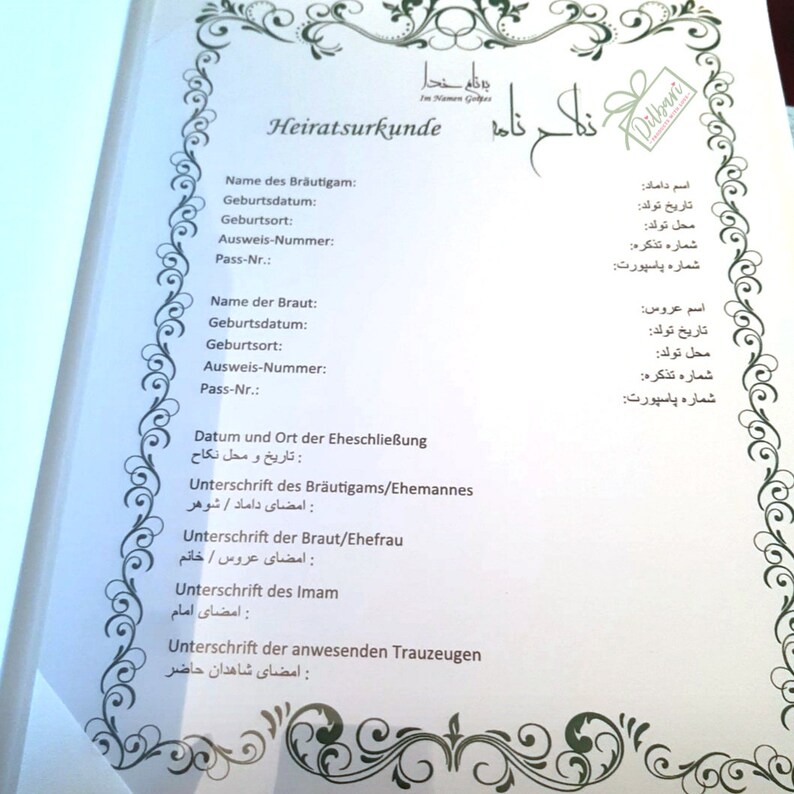 به نام خدا
Im Namen Gottes
Heiratsurkunde نکاح نامه
Dilbari
Name des Bräutigam: اسم داماد:
Geburtsdatum: تاریخ تولد:
Geburtsort: محل تولد:
Ausweis-Nummer: شماره تذکره:
Pass-Nr.: شماره پاسپورت:
Name der Braut: اسم عروس:
Geburtsdatum: تاریخ تولد:
Geburtsort: محل تولد:
Ausweis-Nummer: شماره تذکره:
Pass-Nr.: شماره پاسپورت:
Datum und Ort der Eheschließung
تاریخ و محل نکاح :
Unterschrift des Bräutigams/Ehemannes
امضای داماد / شوهر :
Unterschrift der Braut/Ehefrau
امضای عروس / خانم :
Unterschrift des Imam
امضای امام :
Unterschrift der anwesenden Trauzeugen
امضای شاهدان حاضر :